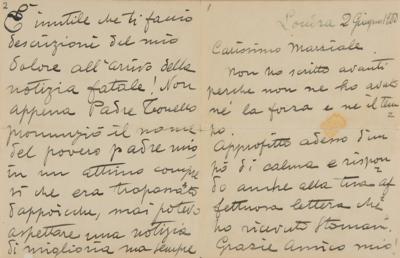 1
2 Giugno 1900
Carissimo Marziale.
Non ho scritto avanti
perche non ne ho avuto
nè la forza e nè il tem
po
Approfitto adesso d'un
pò di calma e rispon
do anche alla tua af
fettuosa lettera che
ho ricevuto stamani.
Grazie Amico mio!
2
E' inutile che ti faccio
descrizione del mio
dolore all'arrivo della
notizia fatale! Non
appena Padre
pronunziò il nome
del povero padre mio
in un attimo compre
si che era trapassato
dappoichè, mai potevo
aspettare una notizia
di miglioria ma sempre